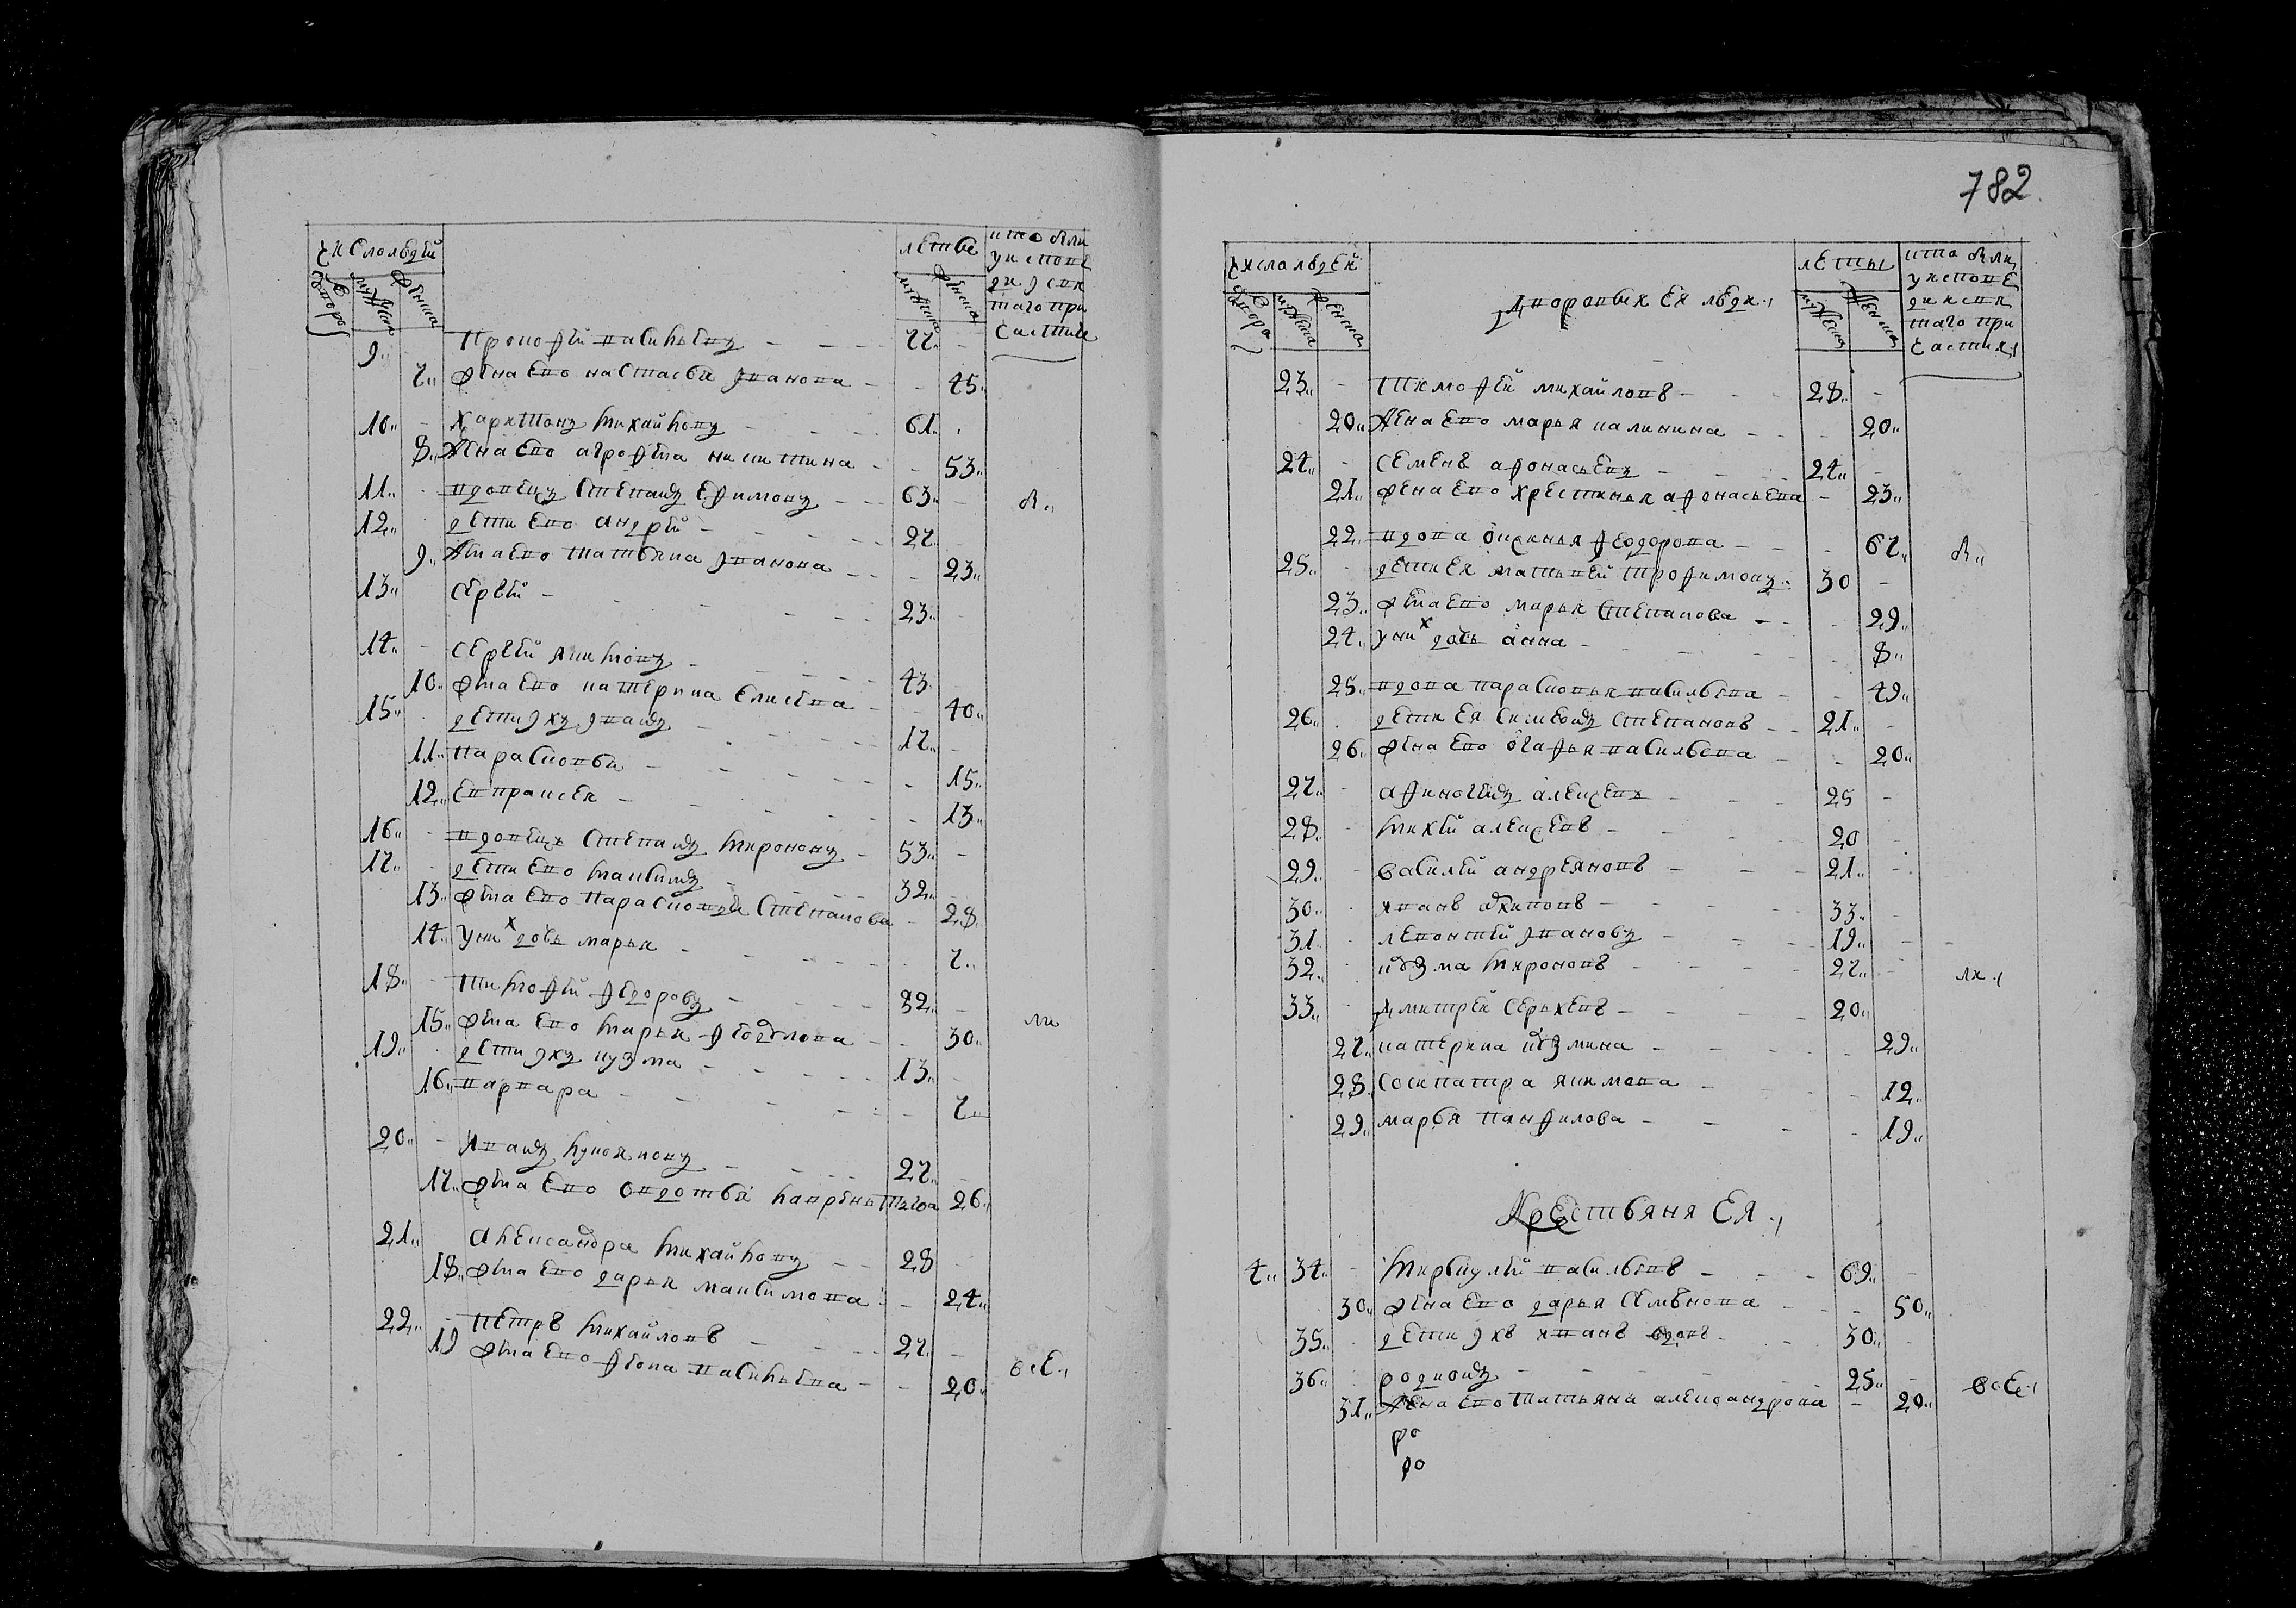 782
число людей
дворов
мужеска
женска
леты
мужеска
женска
кто были
у испове
ди и свя
таго при
частия
9 Прокофей васильевъ 77
7 жена ево настасья иванова 45
10 Харитонъ михайловъ 61
8 жена ево агрофена никитина 53
11 вдовецъ степанъ ефимовъ 63
12 дети ево андрей 27
9 жена ево татьяна иванова 23
13 сергей 23
14 сергей якимовъ 43
10 жена ево катерина елисеева 40
15 дети ихъ иванъ 17
11 парасковья 15
12 евпраксея 13
16 вдовецъ степанъ мироновъ 53
17 дети ево максимъ 32
13 жена ево парасковья степанова 28
14 у них дочь марья 7
18 тимофей федоровъ 32
15 жена ево марья федулова 30
19 дети ихъ кузма 13
16 варвара 7
20 иванъ лукояновъ 27
17 жена ево овдотья лаврентьева 26
21 александра михайловъ 28
18 жена ево дарья максимова 24
22 петръ михайловъ 27
19 жена ево фекла васильева 20
бы
ли
все
число людей
дворовыя ея люди
леты
кто были
у испове
ди и свя
таго при
частия
23 тимофей михайловъ 28
20 жена ево марья калинина 20
24 семенъ афонасьевъ 24
21 жена ево хрестинья афонасьева 23
22 вдова авдинья феодорова 67
25 дети ея матвей трофимовъ 30
23 жена ево марья степанова 29
24 у них дочь анна 8
25 вдова парасковья васильева 49
26 дети ея степанов 21
26 жена ево огафья васильева 20
27 афиногенъ алексеев 25
28 михей алексеевъ 20
29 василей андреяновъ 21
30 иванъ архиповъ 33
31 левонтей ивановъ 19
32 кузма мироновъ 27
33 дмитрей сергеевъ 20
27 катерина кузмина 29
28 сосипатра якимова 12
29 марья панфилова 19
Крестьяня ея
4 34 меркулей васильевъ 69
30 жена ево дарья семенова 50
35 дети ихъ иванъ вдовъ 30
36 родионъ 25
31 жена ево татьяна александрова 20
ро
ро
бы
ли
все